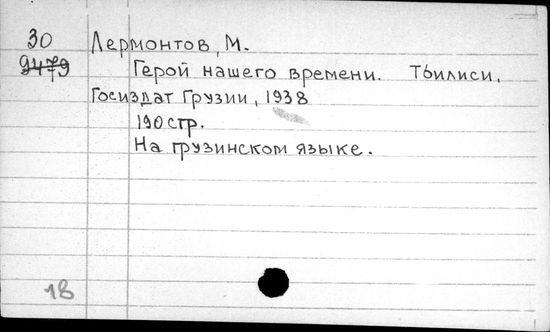 30 Лермонтов, М.
9479 Герой нашего времени. Тбилиси.
Госиздат Грузии, 1938
190 стр.
На грузинском языке.
18